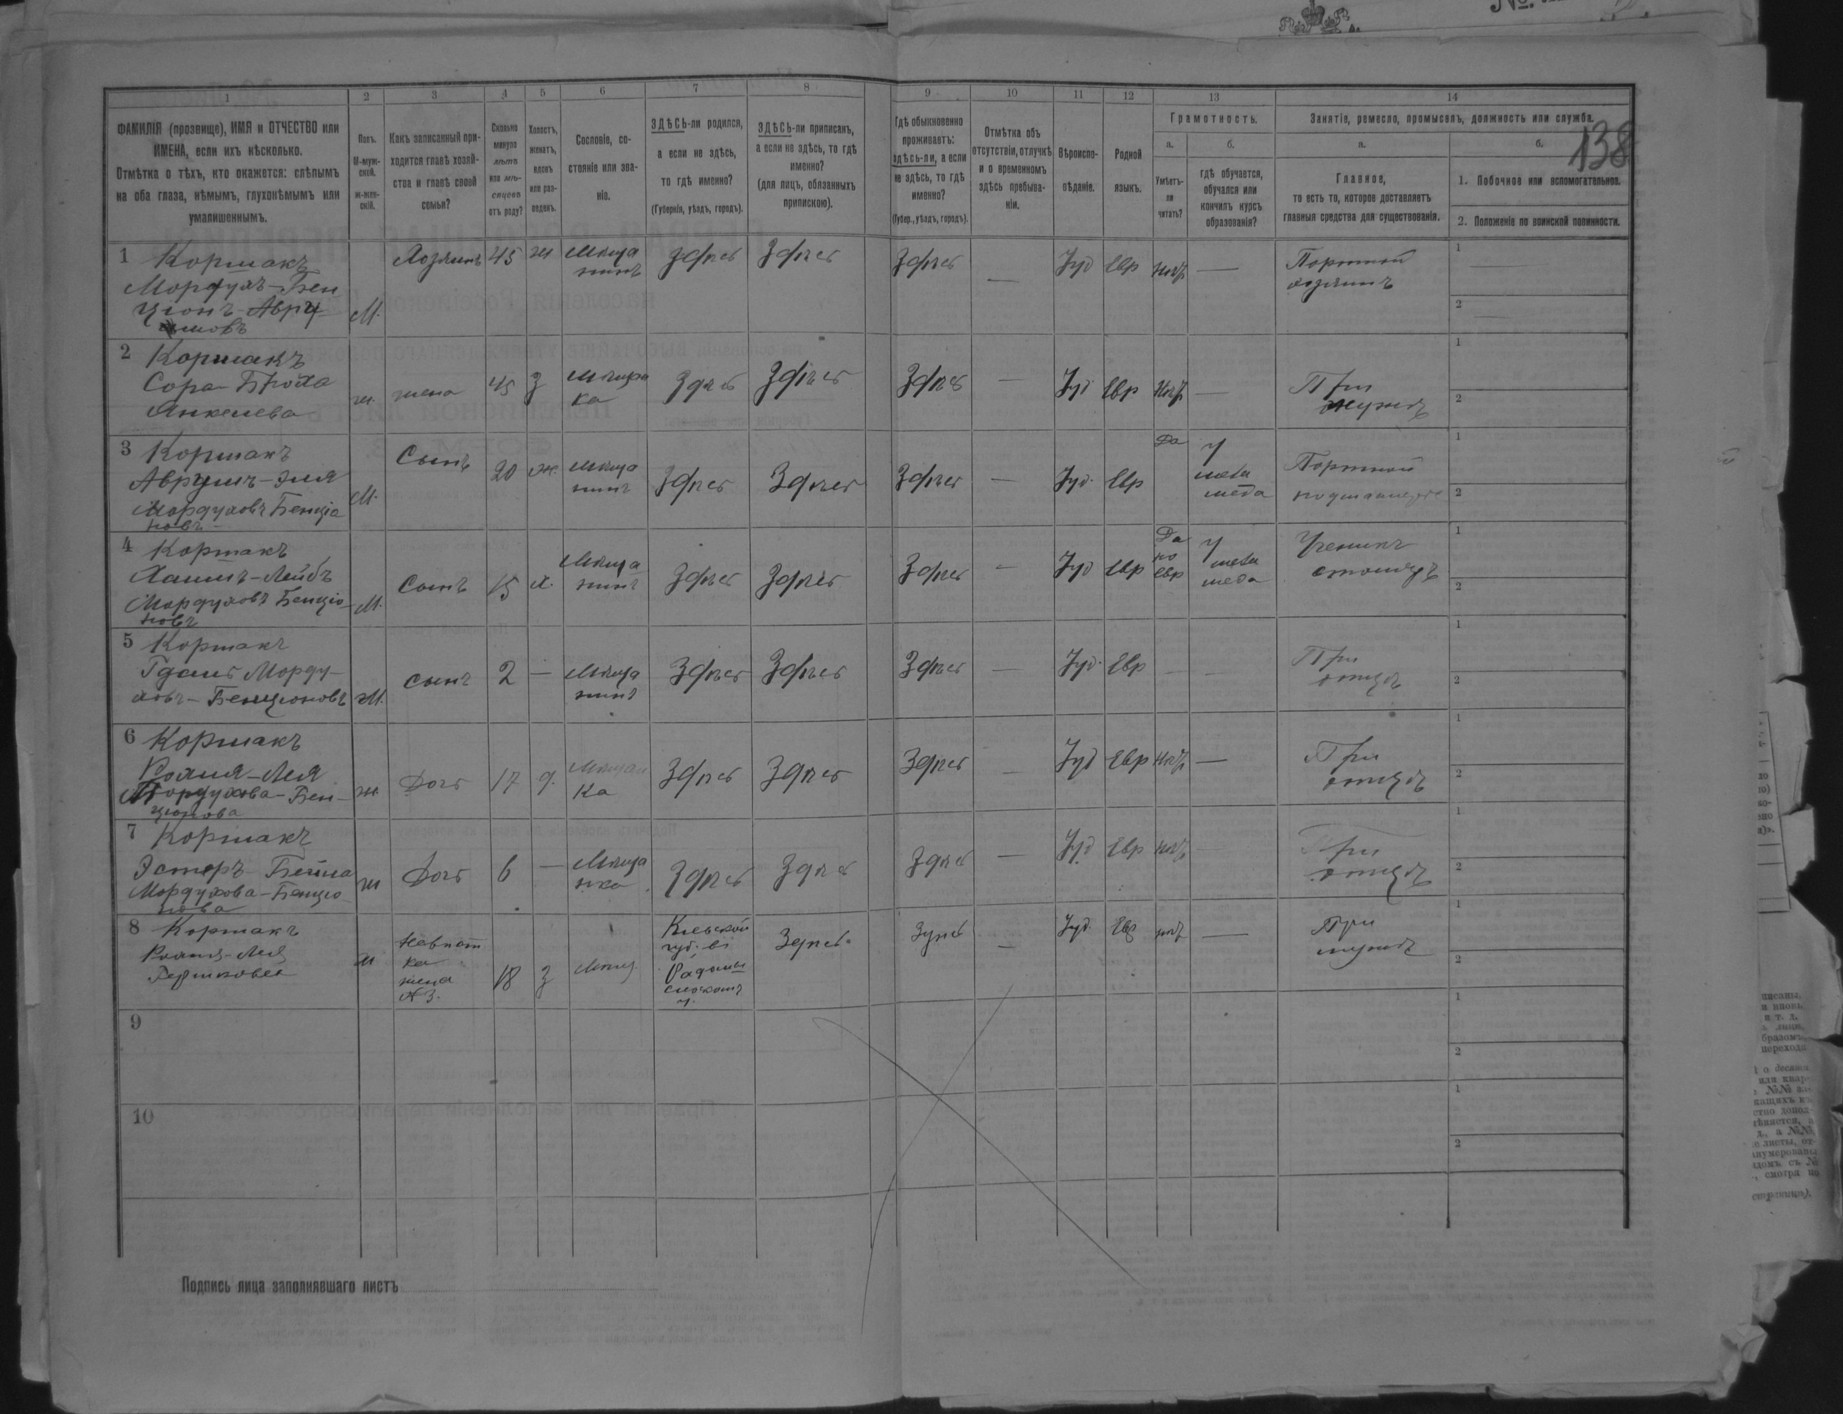 138
1 2 3 4 5 6 7 8 9 10 11 12 13 14
ФАМИЛІЯ (прозвище), ИМЯ и ОТЧЕСТВО или
ИМЕНА, если ихъ нѣсколько.
Отмѣтка о тѣхъ, кто окажется: слѣпымъ
на оба глаза, нѣмымъ, глухонѣмымъ или
умалишеннымъ.
Полъ.
М-муж-
ской.
ж-жен-
скій.
Какъ записанный при-
ходится главѣ хозяй-
ства и главѣ своей
семьи?
Сколько
минуло
лѣтъ
или мѣ-
сяцевъ
отъ роду?
Холостъ,
женатъ,
вдовъ
или раз-
веденъ.
Сословіе, со-
стояніе или зва-
ніе.
ЗДѢСЬ-ли родился,
а если не здѣсь,
то гдѣ именно?
(Губернія, уѣздъ, городъ).
ЗДѢСЬ-ли приписанъ,
а если не здѣсь, то гдѣ
именно?
(для лицъ, обязанныхъ
припискою).
Гдѣ обыкновенно
проживаетъ:
здѣсь-ли, а если
не здѣсь, то гдѣ
именно?
(Губер., уѣздъ, городъ).
Отмѣтка объ
отсутствіи, отлучкѣ
и о временномъ
здѣсь пребыва-
ніи.
Вѣроиспо-
вѣданіе.
Родной
языкъ.
Грамотность.
а.
Умѣетъ-
ли
читать?
б.
гдѣ обучается,
обучался или
кончилъ курсъ
образованія?
Занятіе, ремесло, промыселъ, должность или служба.
а.
Главное,
то есть то, которое доставляетъ
главныя средства для существованія.
б.
1. Побочное или вспомогательное.
2. Положеніе по воинской повинности.
1 Коршакъ
Мордухъ-Бен
ціонъ-Авру
мовъ
М. Хозяинъ 45 ж Мѣща
нинъ
Здѣсь Здѣсь Здѣсь — Іуд Евр нѣтъ —
Портной
хозяинъ
1
2
2 Коршакъ
Сора-Брóха
Янкелева
ж жена 45 з Мѣщан
ка
Здѣсь Здѣсь Здѣсь — Іуд Евр нѣтъ —
При
мужѣ
1
2
3 Коршакъ
Аврумъ-Эля
Мордуховъ Бенціо
новъ
М. Сынъ 20 ж. Мѣща
нинъ
Здѣсь Здѣсь Здѣсь — Іуд. Евр Да
У
мела
меда
Портной
подмастерье
1
2
4 Коршакъ
Хаимъ-Лейбъ
Мордуховъ Бенціо
новъ
М. Сынъ 15 х. Мѣща
нинъ
Здѣсь Здѣсь Здѣсь — Іуд Евр
Да
по
евр
У
мела
меда
Ученикъ
столяръ
1
2
5 Коршакъ
Гдаль Морду-
ховъ-Бенціоновъ
М. сынъ 2 — Мѣща
нинъ
Здѣсь Здѣсь Здѣсь — Іуд. Евр — —
При
отцѣ
1
2
6 Коршакъ
Рохля-Лея
Мордухова-Бен-
ціонова
ж Дочь 17 д. Мѣщан
ка
Здѣсь Здѣсь Здѣсь — Іуд Евр нѣтъ —
При
отцѣ
1
2
7 Коршакъ
Эстеръ-Бейла
Мордухова-Бенціо
нова
ж Дочь 6 — Мѣща
нка
Здѣсь Здѣсь Здѣсь — Іуд Евр нѣтъ
При
отцѣ
1
2
8 Коршакъ
Рохля-Лея
Гершкова
Невѣст
ка
жена
№3.
18 з Мѣщ.
Кіевской
губ. въ
Радомы
сльскомъ
у.
Здѣсь. Здѣсь — Іуд. Евр нѣтъ —
При
мужѣ
1
2
9
1
2
10
1
2
Подпись лица заполнявшаго листъ